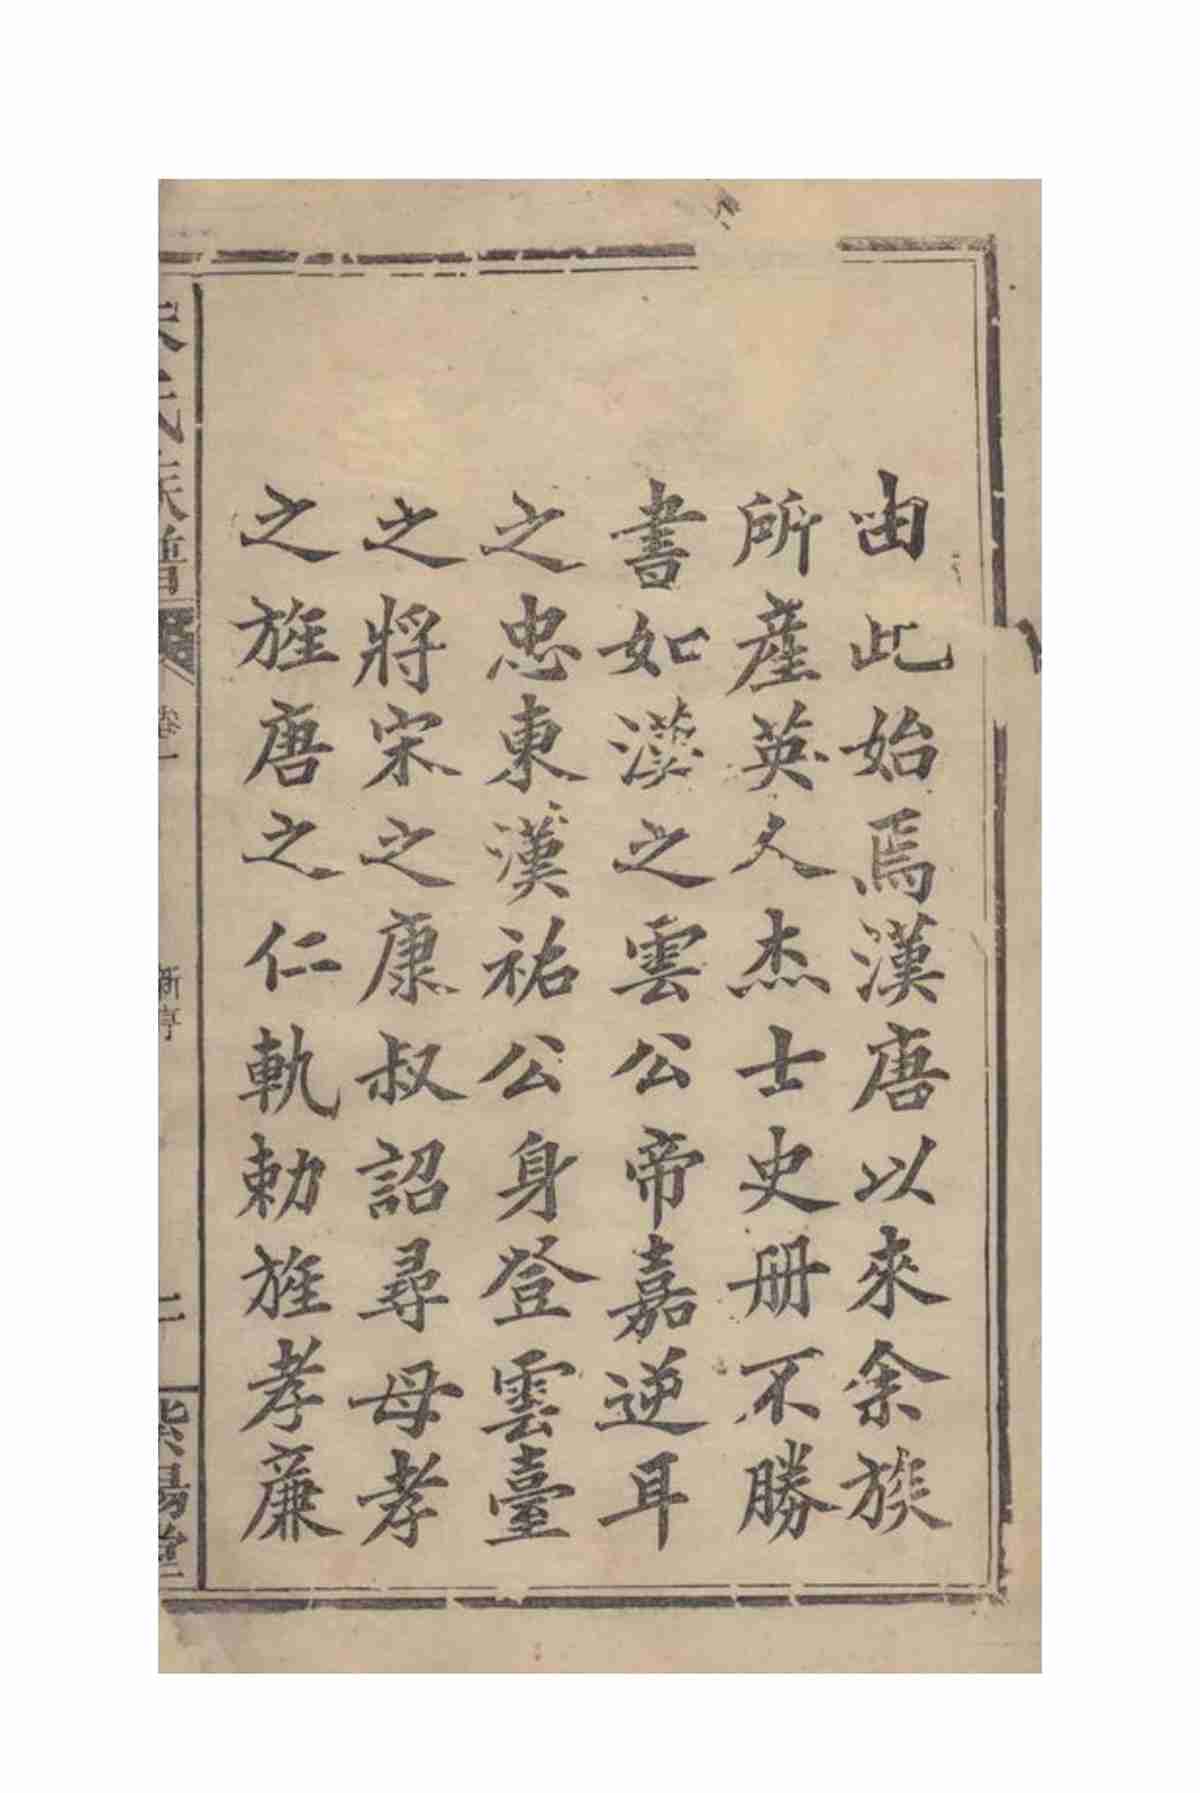 由此始焉漢唐以來余族
所產英人杰士史册不勝
書如漢之雲公帝嘉逆耳
之忠東漢祐公身登雲臺
之將宋之康叔詔尋母孝
之旌唐之仁軌勅旌孝廉
朱氏族譜 卷一 新序 二 紫陽堂